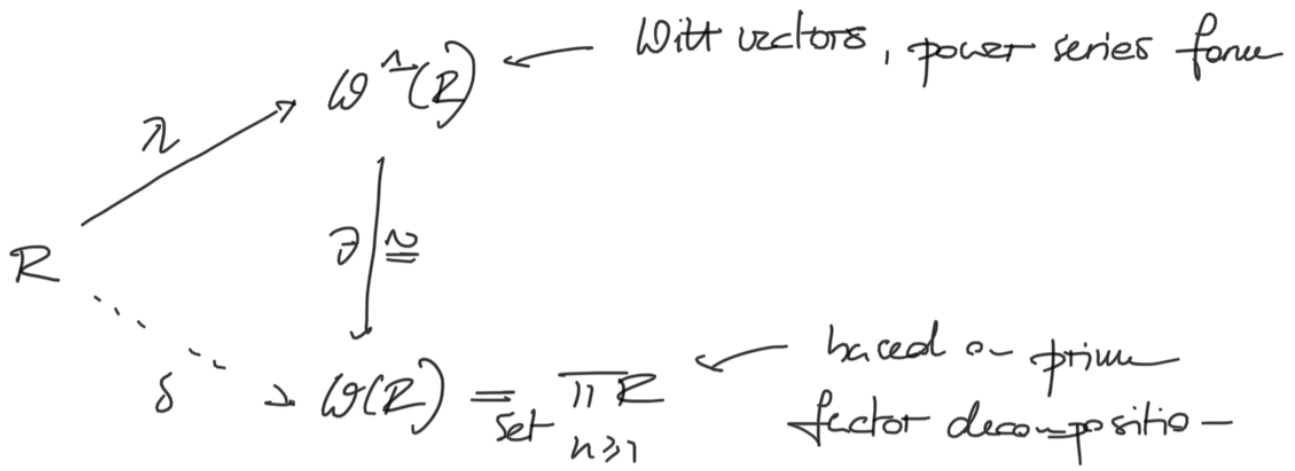 W^Λ(R) ← Witt vectors, power series form
λ
R
∂ ≅
δ
W(R) =
Set
∏ R
n≥1
← based on prime
factor decomposition